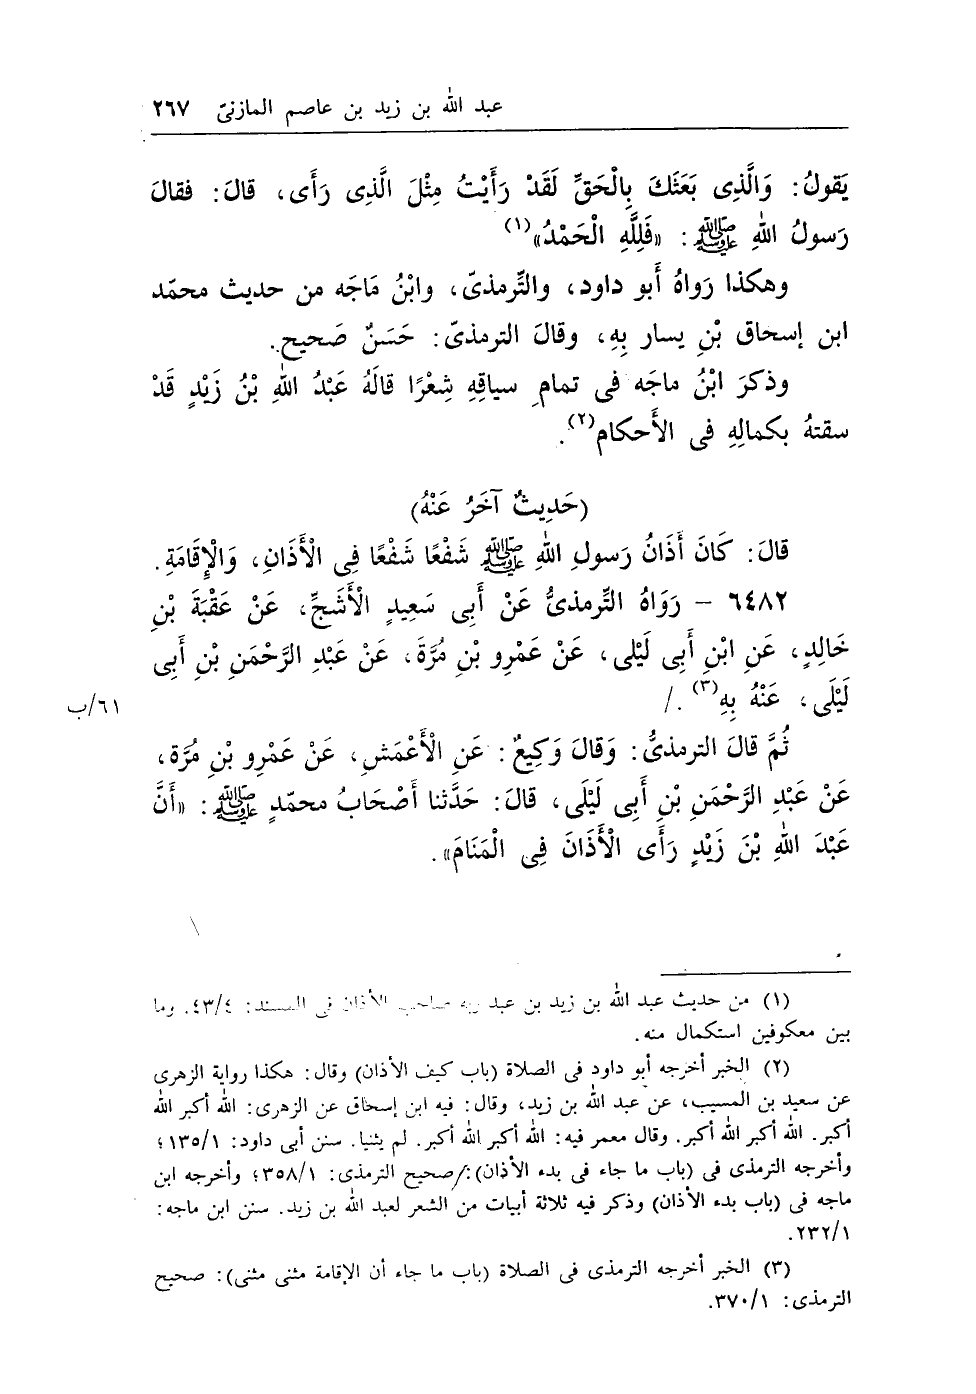 عبد الله بن زيد بن عاصم المازنىّ ٢٦٧
يَقولُ: وَالَّذِى بَعَثَكَ بِالْحَقِّ لَقَدْ رَأَيْتُ مِثْلَ الَّذِى رَأى، قالَ: فقالَ
رَسولُ اللهِ ﷺ: «فَلِلَّهِ الْحَمْدُ»(١)
وهكذا رَواهُ أبو داود، والتِّرمذىّ، وابْنُ مَاجَه من حديث محمّد
ابن إسحاق بْنِ يسار بِهِ، وقالَ الترمذىّ: حَسَنٌ صَحيح.
وذكرَ ابْنُ ماجَه فى تمامِ سياقِهِ شِعْرًا قالَهُ عَبْدُ اللهِ بْنُ زَيْدٍ قَدْ
سقتهُ بكمالِهِ فى الأحكام(٢).
(حَدِيثٌ آخَرُ عَنْهُ)
قالَ: كَانَ أَذَانُ رَسولِ اللهِ ﷺ شَفْعًا شَفْعًا فِى الْأَذَانِ، وَالْإِقَامَةِ.
٦٤٨٢ – رَوَاهُ التِّرمذىُّ عَنْ أَبِى سَعِيدٍ الْأَشَجِّ، عَنْ عَقْبَةَ بْنِ
خَالِدٍ، عَنِ ابْنِ أَبِى لَيْلى، عَنْ عَمْرِو بْنِ مُرَّةَ، عَنْ عَبْدِ الرَّحْمَنِ بْنِ أَبِى
لَيْلَى، عَنْهُ بِهِ(٣)./
٦١/ب
ثُمَّ قالَ الترمذىُّ: وَقالَ وَكِيعٌ: عَنِ الْأَعْمَشِ، عَنْ عَمْرِو بْنِ مُرَّة،
عَنْ عَبْدِ الرَّحْمَنِ بْنِ أَبِى لَيْلَى، قالَ: حَدَّثنا أَصْحَابُ محمّدٍ ﷺ: «أَنَّ
عَبْدَ اللهِ بْنَ زَيْدٍ رَأَى الْأَذَانَ فِى الْمَنَامَ».
(١) من حديث عبد الله بن زيد بن عبد ربه صاحب الأذان فى المسند: ٤٣/٤. وما
بين معكوفين استكمال منه.
(٢) الخبر أخرجه أبو داود فى الصلاة (باب كيف الأذان) وقال: هكذا رواية الزهرى
عن سعيد بن المسيب، عن عبد الله بن زيد، وقال: فيه ابن إسحاق عن الزهرى: الله أكبر الله
أكبر. الله أكبر الله أكبر. وقال معمر فيه: الله أكبر الله أكبر. لم يثنيا. سنن أبى داود: ١٣٥/١؛
وأخرجه الترمذى فى (باب ما جاء فى بدء الأذان):/صحيح الترمذى: ٣٥٨/١؛ وأخرجه ابن
ماجه فى (باب بدء الأذان) وذكر فيه ثلاثة أبيات من الشعر لعبد الله بن زيد. سنن ابن ماجه:
٢٣٢/١.
(٣) الخبر أخرجه الترمذى فى الصلاة (باب ما جاء أن الإقامة مثنى مثنى): صحيح
الترمذى: ٣٧٠/١.